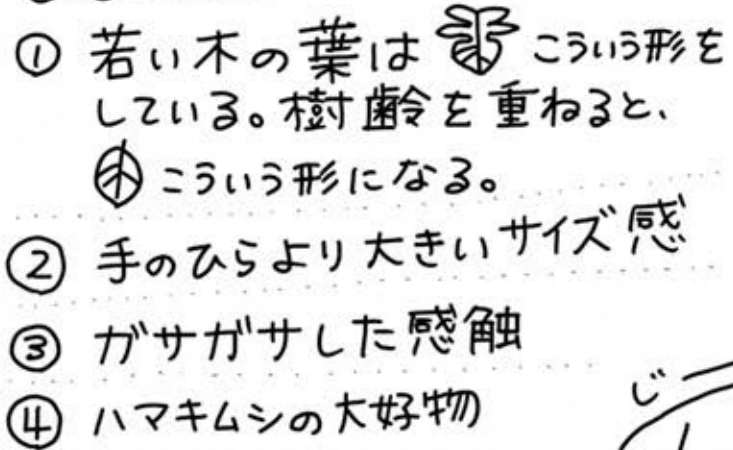 ① 若い木の葉は こういう形を
している。樹齢を重ねると、
こういう形になる。
② 手のひらより大きいサイズ感
③ ガサガサした感触
④ ハマキムシの大好物
じ